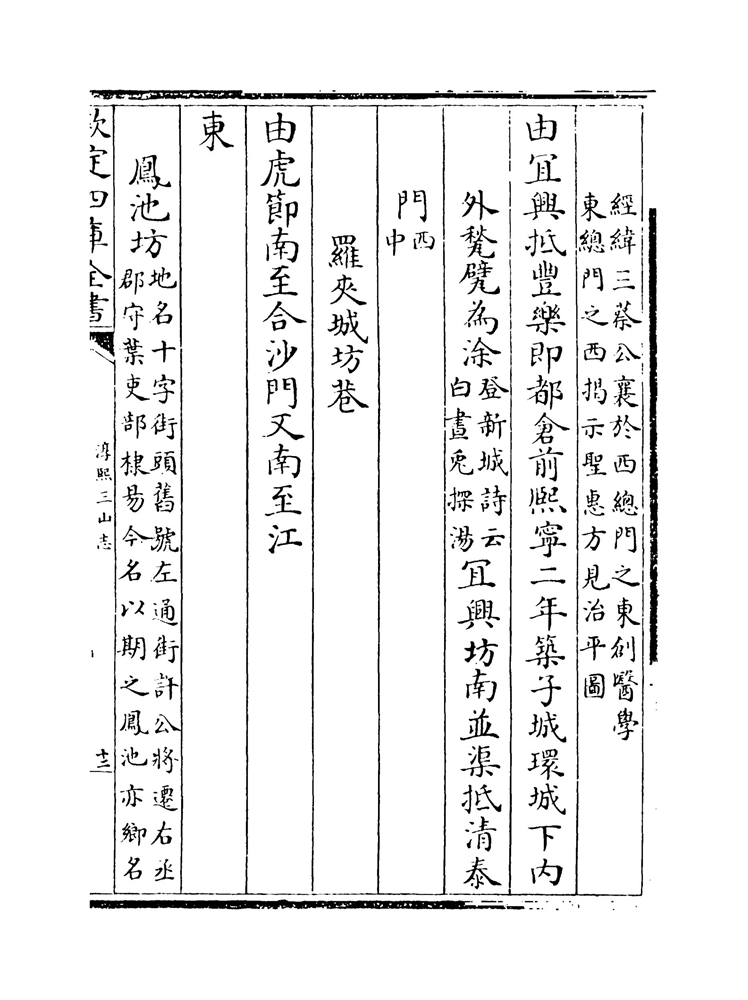 經緯三蔡公襄於西總門之東創醫學
東總門之西揭示聖惠方見治平圖
由宜興抵豐樂即都倉前熙寧二年築子城環城下内
外甃甓為涂登新城詩云
白晝兎探湯宜興坊南並渠抵清泰
門西
中
羅夾城坊巷
由虎節南至合沙門又南至江
東
鳳池坊地名十字街頭舊號左通街許公將遷右丞
郡守葉吏部棣易今名以期之鳳池亦鄉名
欽定四庫全書
淳熙三山志
十三